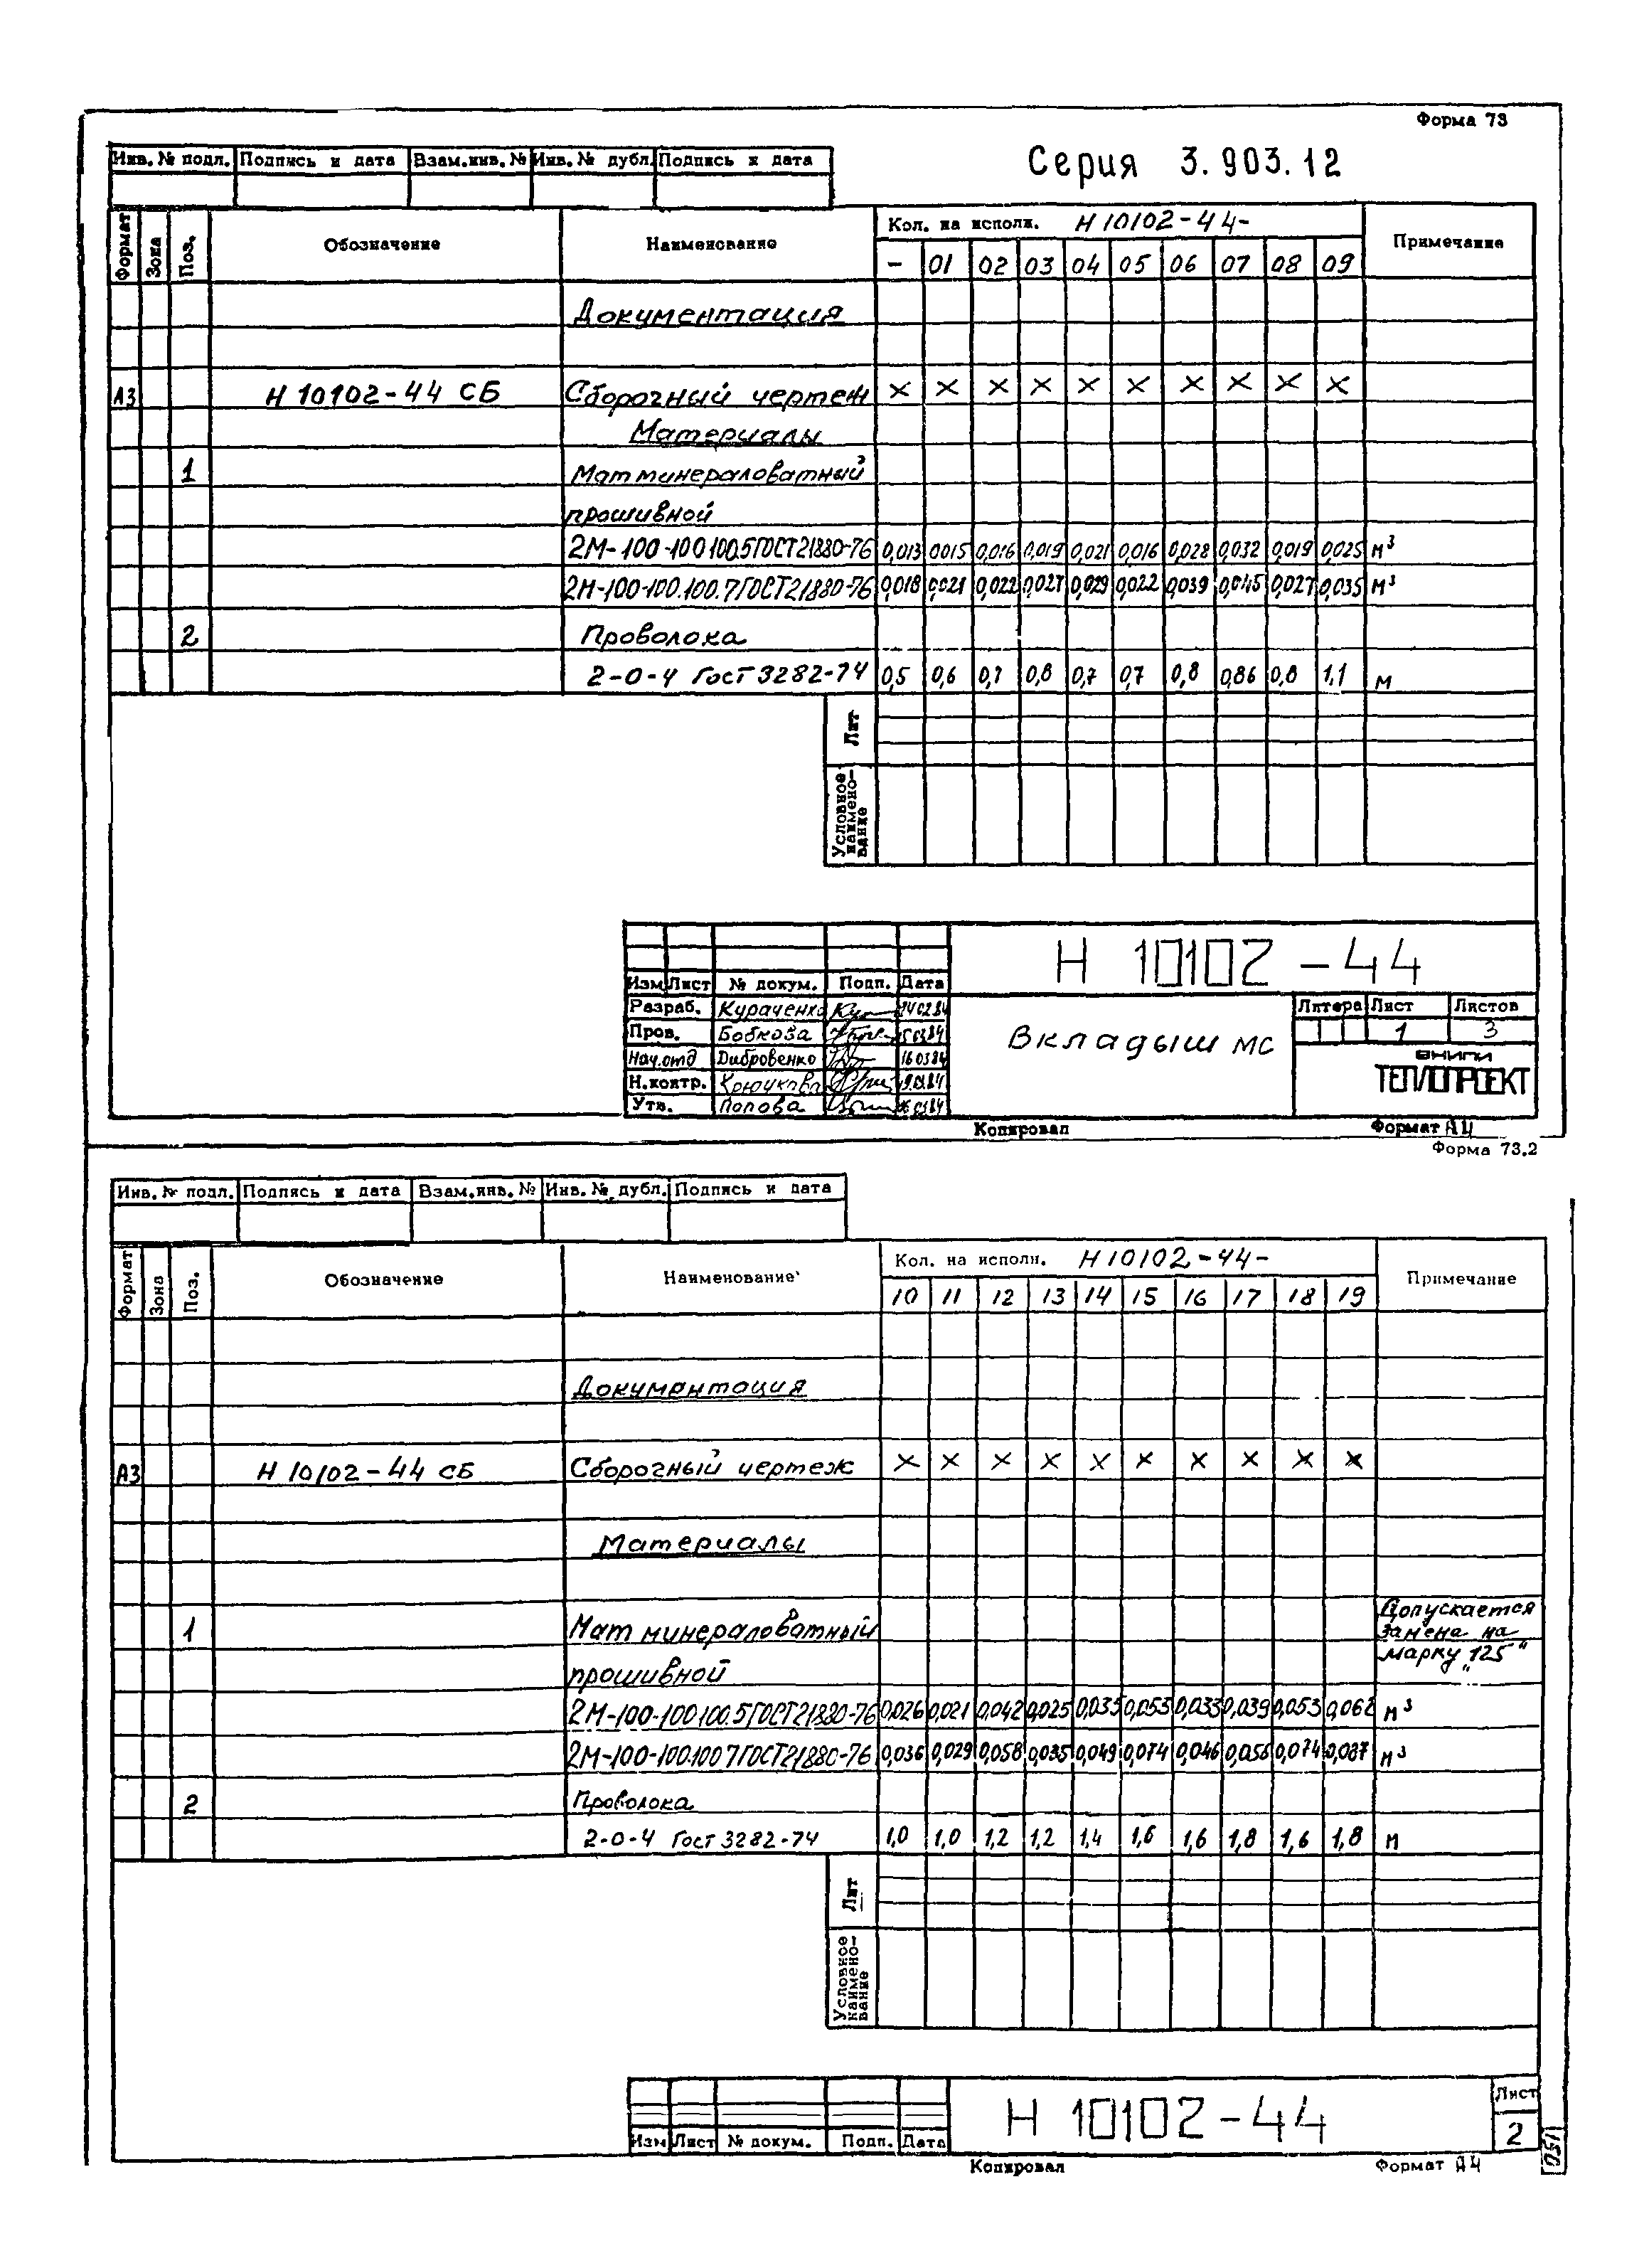 Форма 73
Инв. № подл. Подпись и дата Взам.инв. № Инв. № дубл. Подпись и дата
Серия 3.903.12
Формат Зона Поз. Обозначение Наименование Кол. на исполн. Н 10102-44- Примечание
- 01 02 03 04 05 06 07 08 09
Документация
А3 Н 10102-44 СБ Сборочный чертеж × × × × × × × × × ×
Материалы
1 Мат минераловатный
прошивной
2М-100-100.100.5 ГОСТ 21880-76 0,013 0,015 0,016 0,019 0,021 0,016 0,028 0,032 0,019 0,025 м³
2М-100-100.100.7 ГОСТ 21880-76 0,018 0,021 0,022 0,027 0,029 0,022 0,039 0,045 0,027 0,035 м³
2 Проволока
2-0-4 Гост 3282-74 0,5 0,6 0,7 0,8 0,7 0,7 0,8 0,86 0,8 1,1 м
Лит
Условное наименование
Н 10102-44
Изм Лист № докум. Подп. Дата
Разраб. Кураченко
Пров. Бобкова
Нач.отд Дибровенко 16.03.84
Н.контр. Крючкова
Утв. Попова
Вкладыш МС
Литера Лист Листов
1 3
ВНИПИ
ТЕПЛОПРОЕКТ
Копировал Формат А4
Форма 73.2
Инв. № подл. Подпись и дата Взам.инв. № Инв. № дубл. Подпись и дата
Формат Зона Поз. Обозначение Наименование Кол. на исполн. Н 10102-44- Примечание
10 11 12 13 14 15 16 17 18 19
Документация
А3 Н 10102-44 СБ Сборочный чертеж × × × × × × × × × ×
Материалы
1 Мат минераловатный Допускается
замена на
марку „125"
прошивной
2М-100-100.100.5 ГОСТ 21880-76 0,026 0,021 0,042 0,025 0,035 0,053 0,033 0,039 0,053 0,062 м³
2М-100-100.100 7 ГОСТ 21880-76 0,036 0,029 0,058 0,035 0,049 0,074 0,046 0,074 0,087 м³
2 Проволока
2-0-4 Гост 3282-74 1,0 1,0 1,2 1,2 1,4 1,6 1,6 1,8 1,6 1,8 м
Лит
Условное наименование
Н 10102-44
Изм Лист № докум. Подп. Дата
Лист
2
Копировал Формат А4